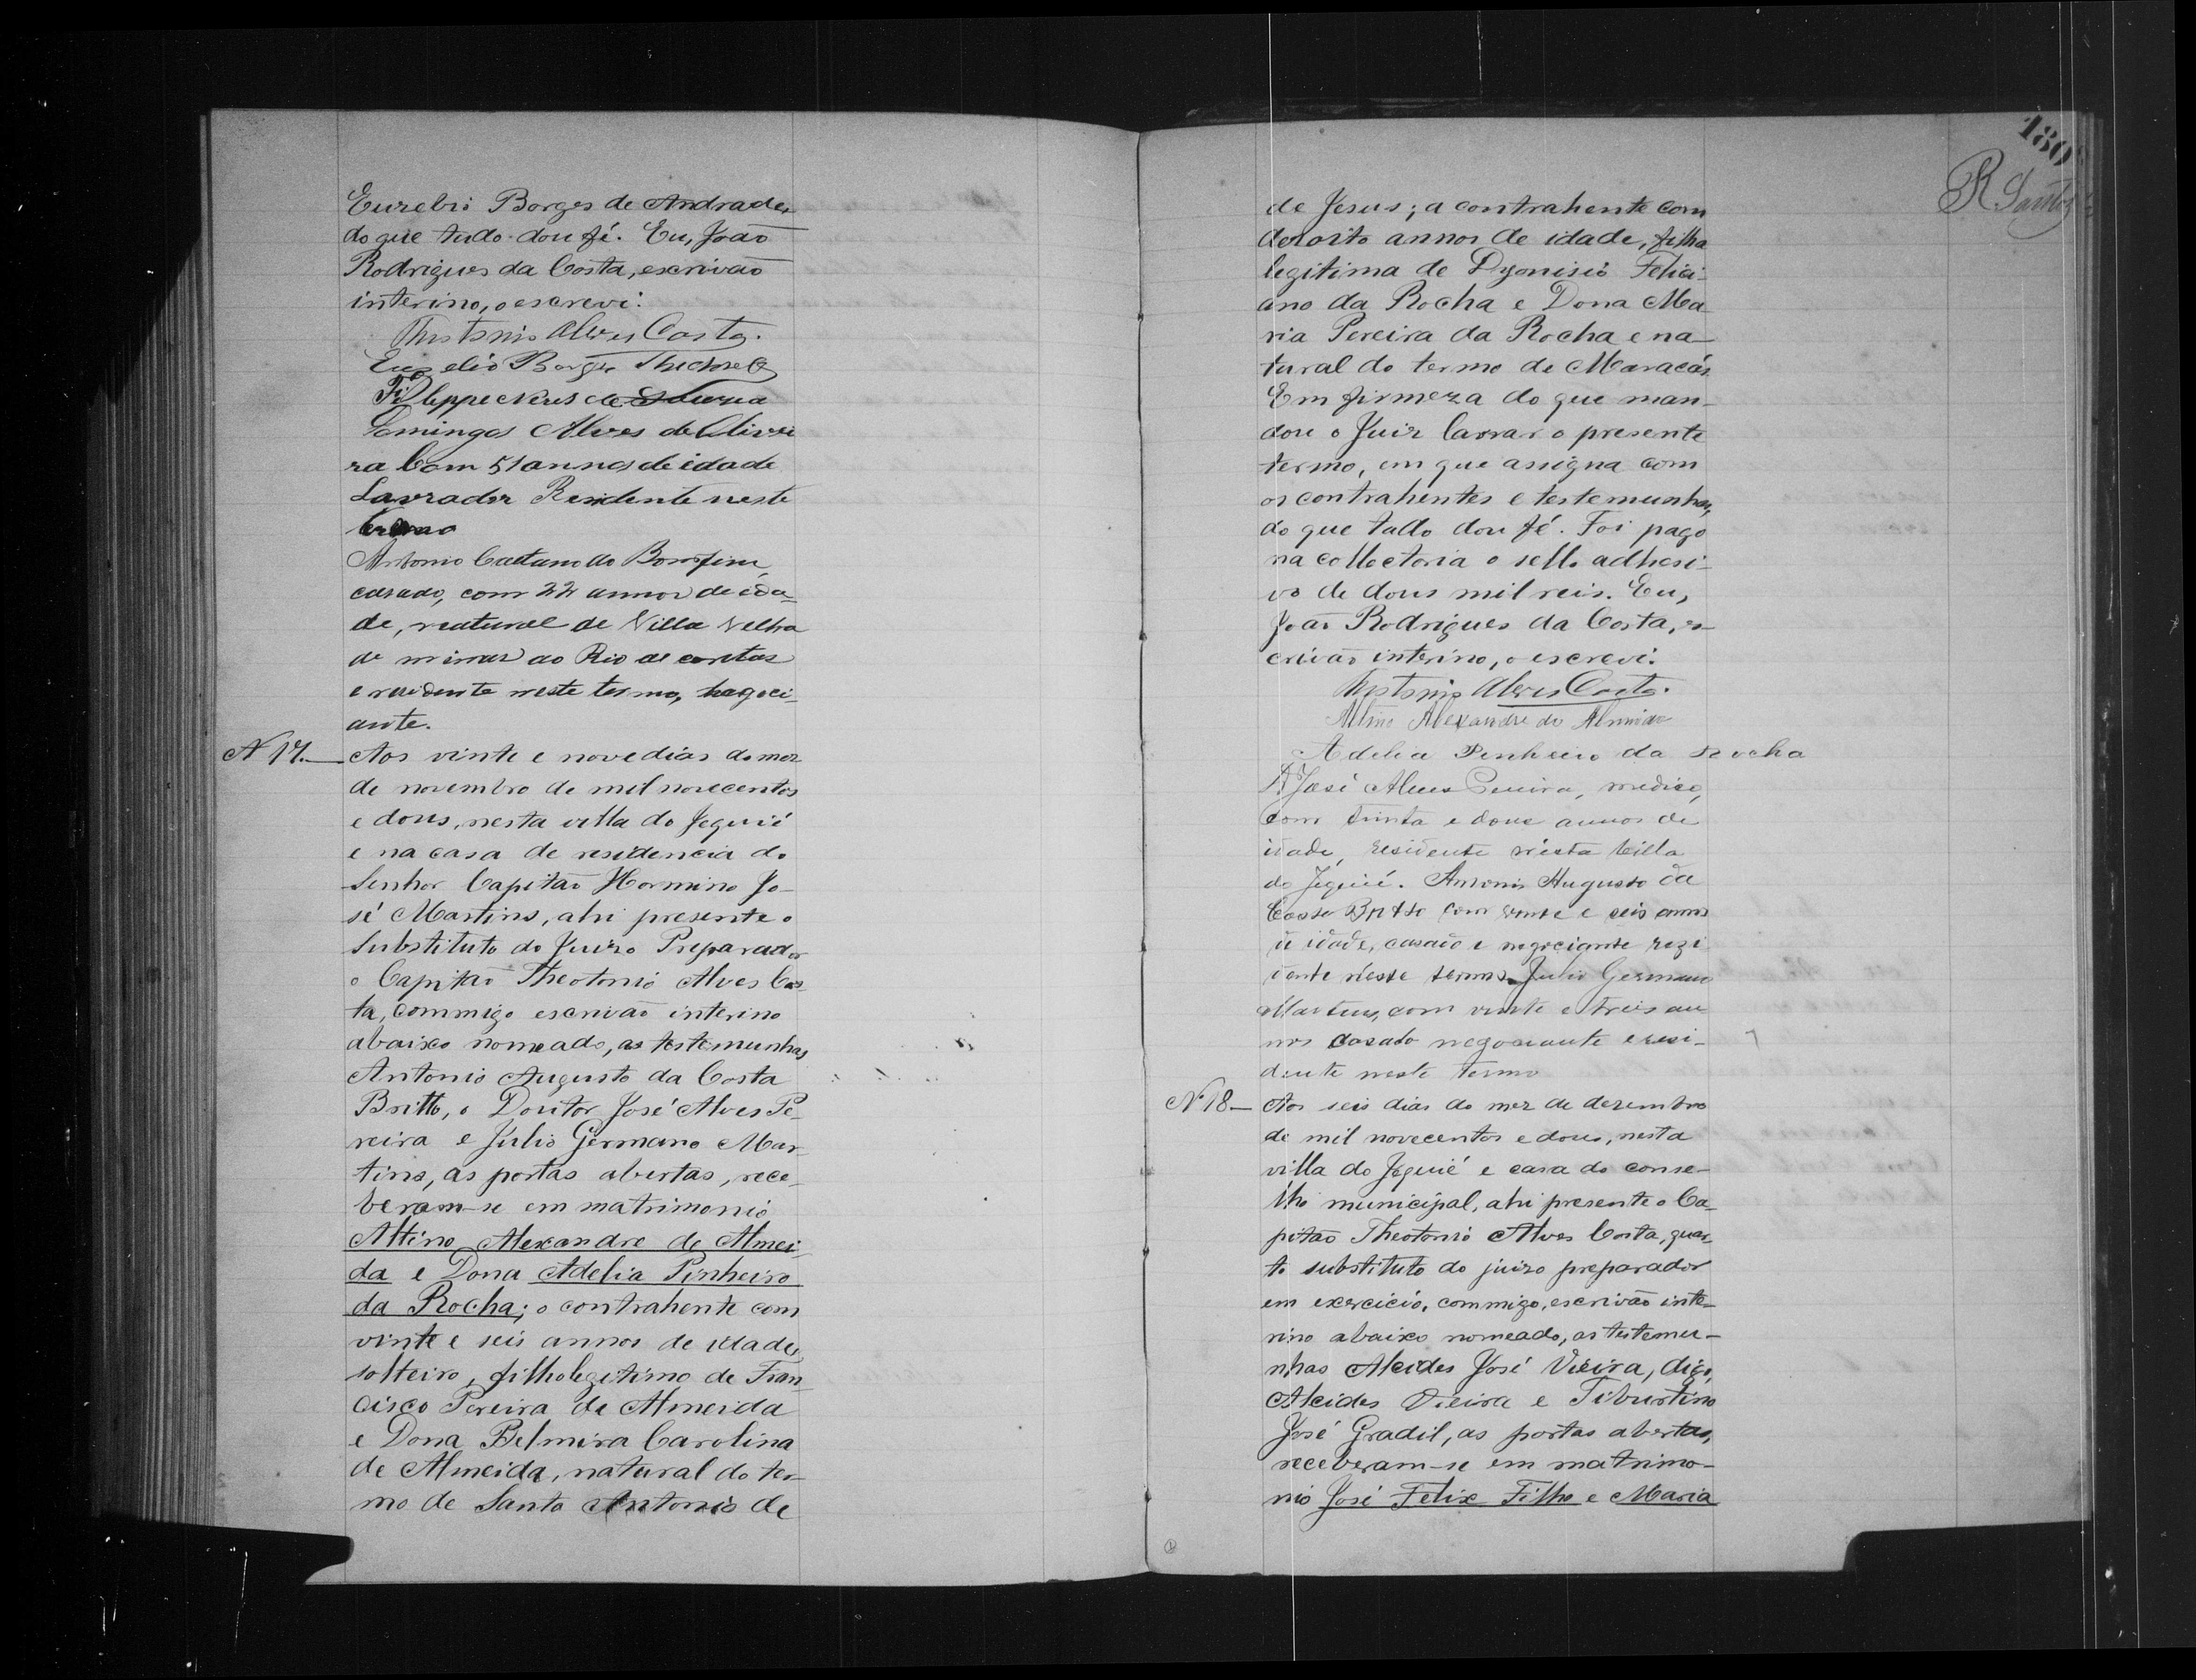 Euzebio Borges de Andrade,
do que tudo dou fé. Eu, João
Rodrigues da Costa, escrivão
interino, o escrevi.
Theotonio Alves Costa.
Borges
Filippe Neris de Souza
Domingos Alves de Olivei
ra Com 51 annos de idade
Lavrador Residente neste
termo
Antonio Caetano do Bomfim,
casado, com 22 annos de ida-
de, natural de Villa Velha
de minas do Rio de contas
e residente neste termo, negoci-
ante.
N 17. Aos vinte e nove dias do mez
de novembro de mil novecentos
e dous, nesta villa do Jequié
e na casa de residencia do
Senhor Capitão Hormino Jo-
sé Martins, ahi presente o
Substituto do Juizo Preparador
o Capitão Theotonio Alves Cos-
ta, commigo escrivão interino
abaixo nomeado, as testemunhas
Antonio Augusto da Costa
Britto, o Doutor José Alves Pe-
reira e Julio Germano Mar-
tins, as portas abertas, rece-
beram-se em matrimonio
Altino Alexandre de Almei-
da e Dona Adelia Pinheiro
da Rocha; o contrahente com
vinte e seis annos de idade,
solteiro, filho legitimo de Fran-
cisco Pereira de Almeida
e Dona Belmira Carolina
de Almeida, natural do ter-
mo de Santo Antonio de
180
R Santos
de Jesus; a contrahente com
dezoito annos de idade, filha
legitima de Dyonisio Felici-
ano da Rocha e Dona Ma-
ria Pereira da Rocha e na-
tural do termo de Maracás
Em firmeza do que man-
dou o Juiz lavrar o presente
termo, em que assigna com
os contrahentes e testemunhas,
do que tudo dou fé. Foi pago
na collectoria o sello adhesi-
vo de dous mil reis. Eu,
João Rodrigues da Costa, es-
crivão interino, o escrevi.
Theotonio Alves Costa.
Altino Alexandre de Almeida
Adelia Pinheiro da Rocha
Dr José Alves Pereira, medico,
com trinta e dous annos de
idade, residente nésta Villa
do Jequié. Antonio Augusto da
Costa Britto com vinte e seis annos
de idade, casado e negociante rezi
dente neste termo. Julio Germano
Martins, com vinte e treis an
nos casado negociante e resi-
dente neste termo
N 18- Aos seis dias do mez de dezembro
de mil novecentos e dous, nesta
villa do Jequié e casa do conse-
lho municipal, ahi presente o Ca-
pitão Theotonio Alves Costa, quar-
to substituto do juizo preparador
em exercicio, commigo, escrivão inte-
rino abaixo nomeado, as testemu-
nhas Alcides José Vieira, digo,
Alcides Vieira e Tiburtino
José Gradil, as portas abertas,
receberam-se em matrimo-
nio José Felix Filho e Maria